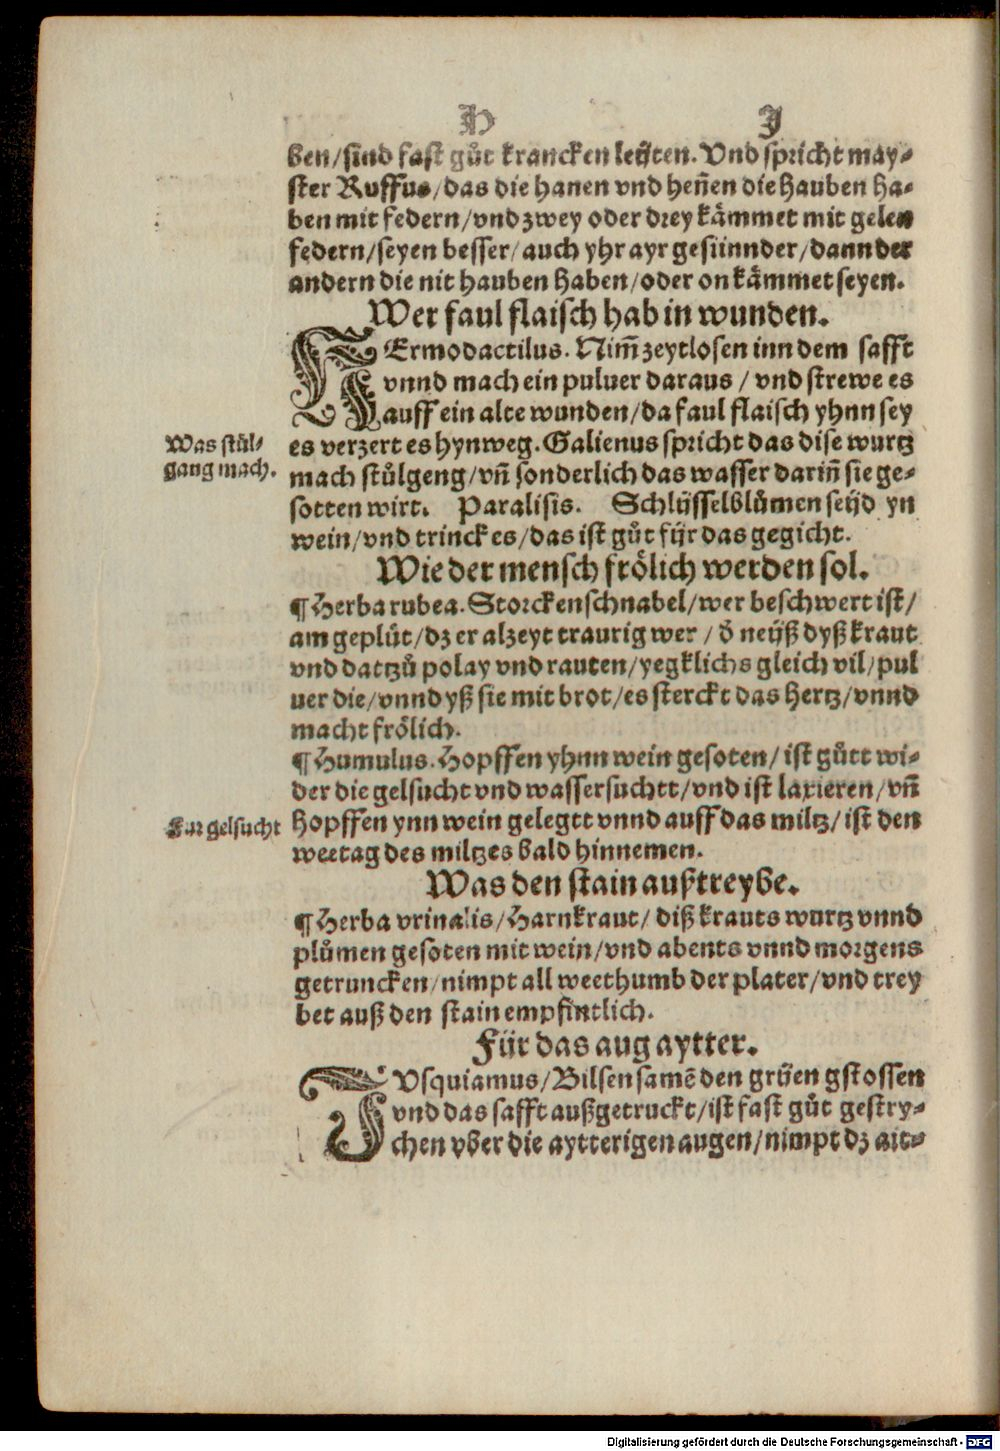 H J
ben/sind fast gůt krancken leüten. Vnd spricht may⸗
ster Ruffus/das die hanen vnd heñen die hauben ha⸗
ben mit federn/vnd zwey oder drey kämmet mit gelen
federn/seyen besser/auch yhr ayr gesünnder/dann der
andern die nit hauben haben/oder on kämmet seyen.
Wer faul flaisch hab in wunden.
HErmodactilus. Nim̃ zeytlosen inn dem safft
vnnd mach ein puluer daraus / vnd strewe es
auff ein alte wunden/da faul flaisch yhnn sey
Was stůl⸗
gang mach.
es verzert es hynweg. Galienus spricht das dise wurtz
mach stůlgeng/vñ sonderlich das wasser dariñ sie ge⸗
sotten wirt. Paralisis. Schlüsselblůmen seüd yn
wein/vnd trinck es/das ist gůt für das gegicht.
Wie der mensch frölich werden sol.
¶ Herba rubea. Storckenschnabel/wer beschwert ist/
am geplůt/dz er alzeyt traurig wer / d̕ neüß dyß kraut
vnd dartzů polay vnd rauten/yegklichs gleich vil/pul
uer die/vnnd yß sie mit brot/es sterckt das hertz/vnnd
macht frölich.
¶ Humulus. Hopffen yhnn wein gesoten/ ist gůtt wi⸗
der die gelsucht vnd wassersuchtt/vnd ist laxieren/vñ
Für gelsucht
hopffen ynn wein gelegtt vnnd auff das miltz/ist den
weetag des miltzes bald hinnemen.
Was den stain außtreybe.
¶ Herba vrinalis/Harnkraut/ diß krauts wurtz vnnd
plůmen gesoten mit wein/vnd abents vnnd morgens
getruncken/nimpt all weethumb der plater/vnd trey
bet auß den stain empfintlich.
Für das aug aytter.
JVsquiamus/Bilsen samē den grüen gstossen
vnd das safft außgetruckt/ist fast gůt gestry⸗
chen vber die aytterigen augen/nimpt dz ait⸗
Digitalisierung gefördert durch die Deutsche Forschungsgemeinschaft - DFG